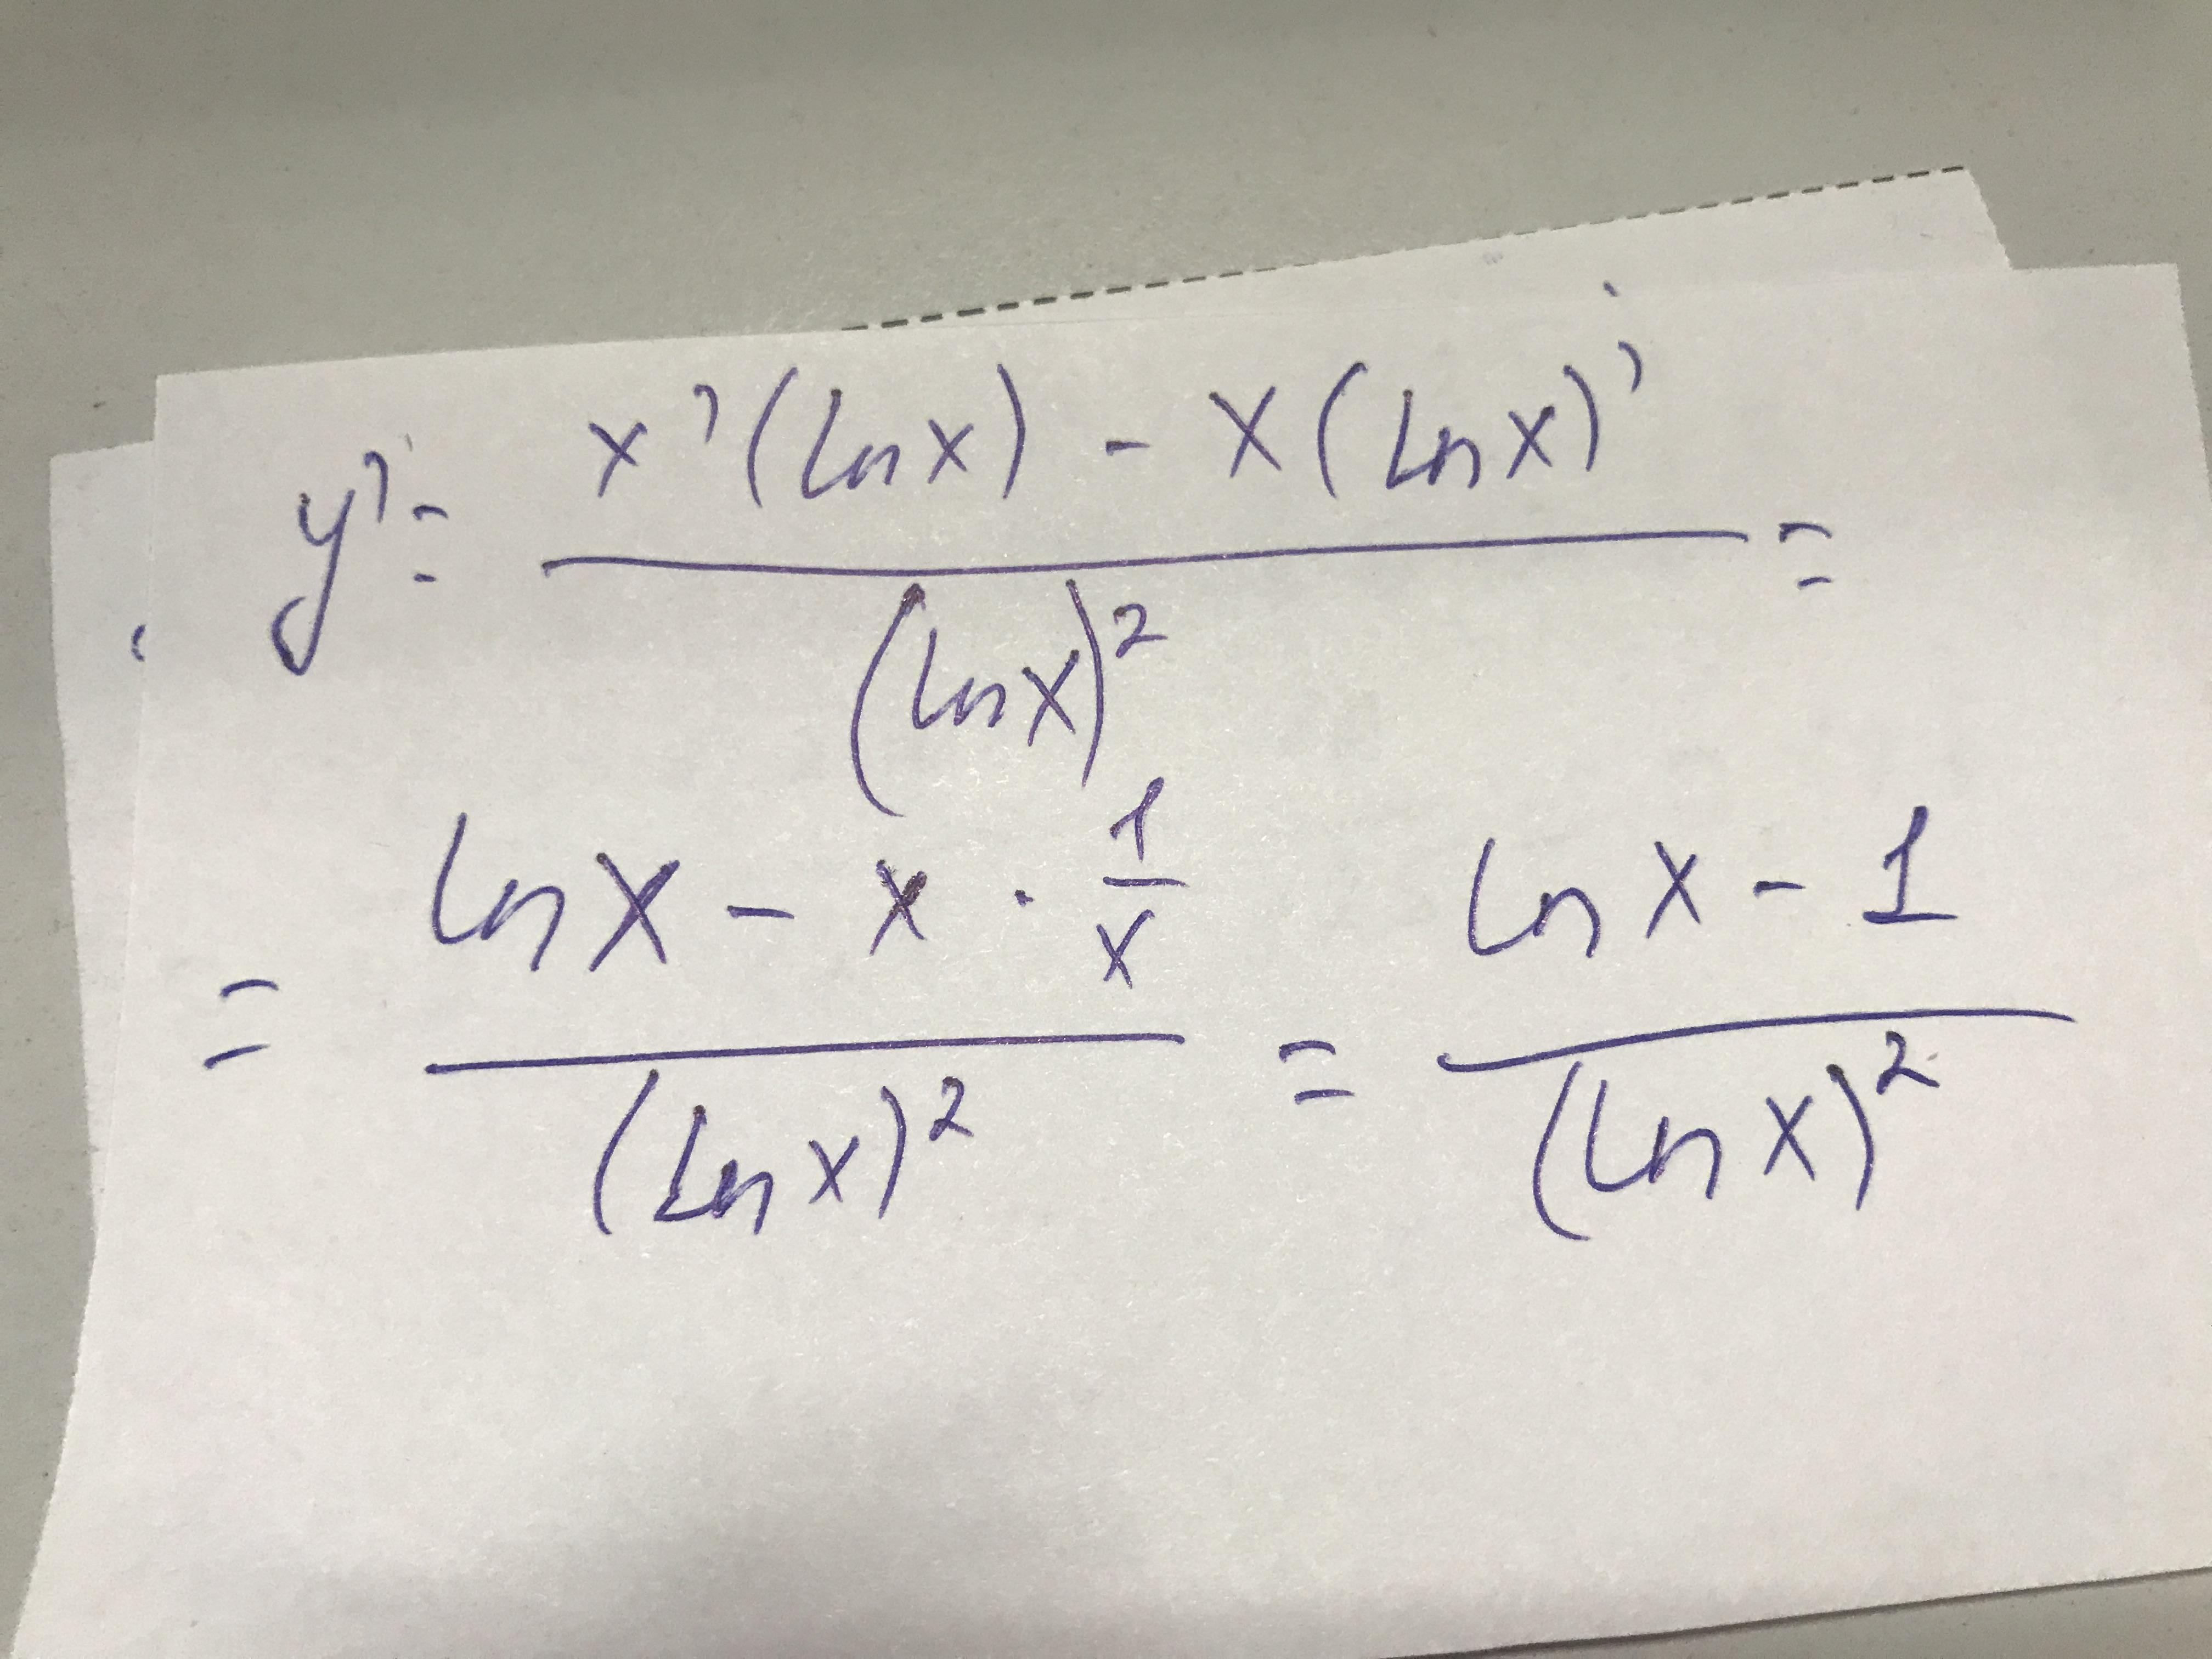 y' = (x'(ln x) - x(ln x)') / (ln x)² =
= (ln x - x · 1/x) / (ln x)² = (ln x - 1) / (ln x)²